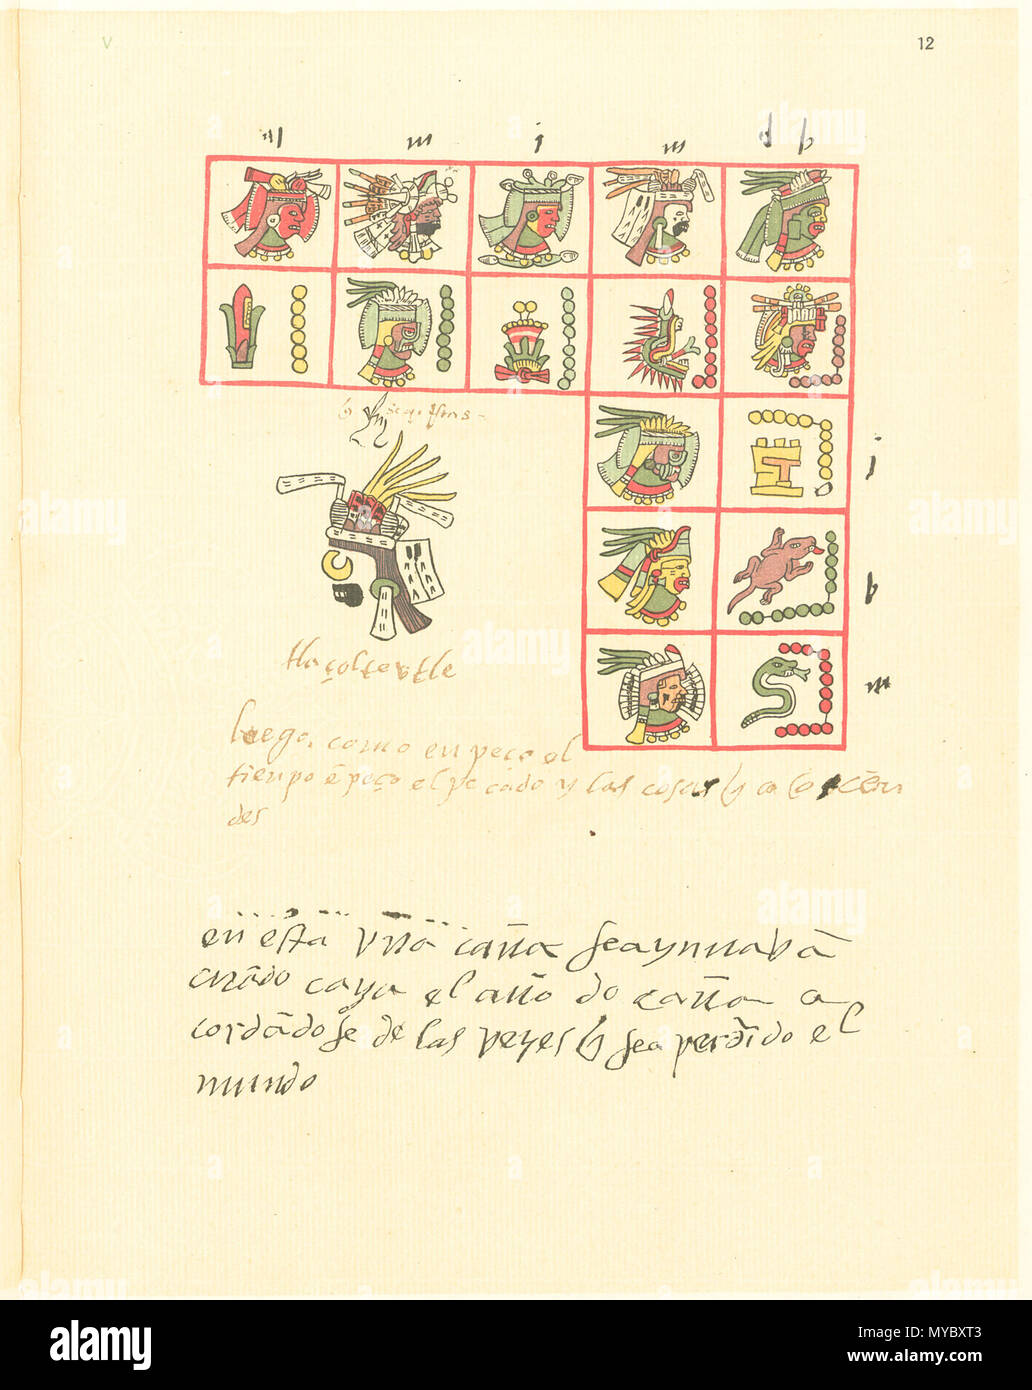 V
12
m
j
m
d b
j
b
m
tlaçolteutle
luego, como en peço el
tienpo ēpeço el pecado y las cosas
des
en esta vna caña se aynuavā
cuādo caya el año do caña a
cordādose de las veyes q̄ se a perdido el
mundo
alamy
Image ID: MYBXT3
www.alamy.com